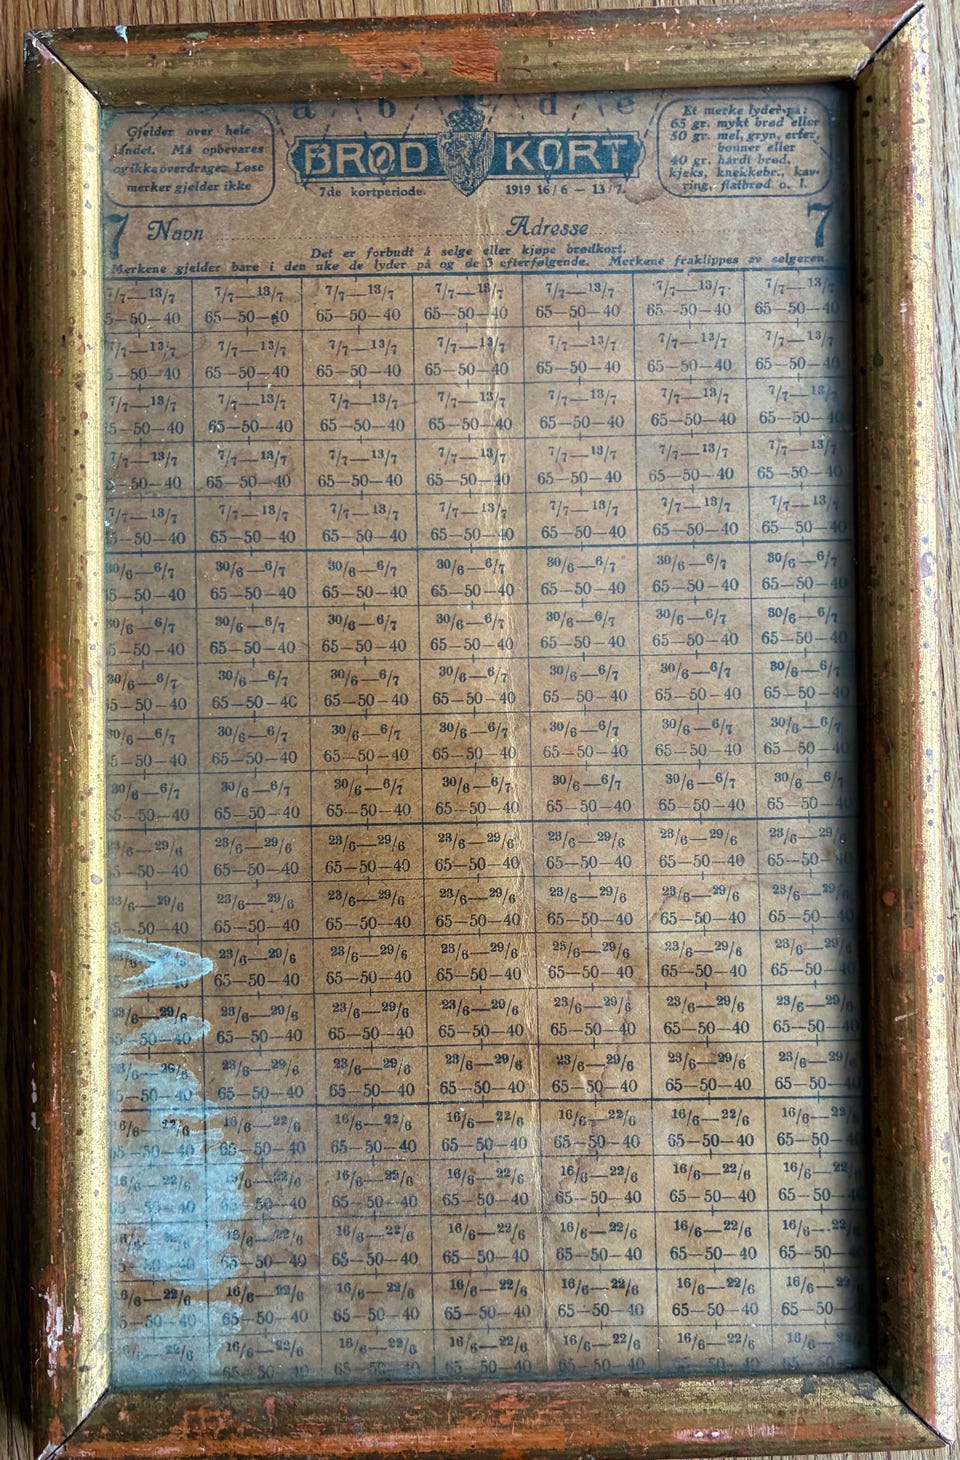 a b d e
Gjelder over hele
landet. Må opbevares
og ikke overdrages. Løse
merker gjelder ikke
BRØD KORT
7de kortperiode. 1919 16/6 — 13/7.
Et merke lyder på:
65 gr. mykt brød eller
50 gr. mel, gryn, erter,
bønner eller
40 gr. hårdt brød,
kjeks, knekkebr., kav-
ring, flatbrød o. l.
7 Navn Adresse 7
Det er forbudt å selge eller kjøpe brødkort.
Merkene gjelder bare i den uke de lyder på og de 3 efterfølgende. Merkene fraklippes av selgeren.
7/7—13/7 7/7—13/7 7/7—13/7 7/7—13/7 7/7—13/7 7/7—13/7 7/7—13/7
5—50—40 65—50—40 65—50—40 65—50—40 65—50—40 65—50—40 65—50—40
7/7—13/7 7/7—13/7 7/7—13/7 7/7—13/7 7/7—13/7 7/7—13/7 7/7—13/7
5—50—40 65—50—40 65—50—40 65—50—40 65—50—40 65—50—40 65—50—40
7/7—13/7 7/7—13/7 7/7—13/7 7/7—13/7 7/7—13/7 7/7—13/7 7/7—13/7
5—50—40 65—50—40 65—50—40 65—50—40 65—50—40 65—50—40 65—50—40
7/7—13/7 7/7—13/7 7/7—13/7 7/7—13/7 7/7—13/7 7/7—13/7 7/7—13/7
5—50—40 65—50—40 65—50—40 65—50—40 65—50—40 65—50—40 65—50—40
7/7—13/7 7/7—13/7 7/7—13/7 7/7—13/7 7/7—13/7 7/7—13/7 7/7—13/7
5—50—40 65—50—40 65—50—40 65—50—40 65—50—40 65—50—40 65—50—40
30/6—6/7 30/6—6/7 30/6—6/7 30/6—6/7 30/6—6/7 30/6—6/7 30/6—6/7
5—50—40 65—50—40 65—50—40 65—50—40 65—50—40 65—50—40 65—50—40
30/6—6/7 30/6—6/7 30/6—6/7 30/6—6/7 30/6—6/7 30/6—6/7 30/6—6/7
5—50—40 65—50—40 65—50—40 65—50—40 65—50—40 65—50—40 65—50—40
30/6—6/7 30/6—6/7 30/6—6/7 30/6—6/7 30/6—6/7 30/6—6/7 30/6—6/7
5—50—40 65—50—40 65—50—40 65—50—40 65—50—40 65—50—40 65—50—40
30/6—6/7 30/6—6/7 30/6—6/7 30/6—6/7 30/6—6/7 30/6—6/7 30/6—6/7
5—50—40 65—50—40 65—50—40 65—50—40 65—50—40 65—50—40 65—50—40
30/6—6/7 30/6—6/7 30/6—6/7 30/6—6/7 30/6—6/7 30/6—6/7 30/6—6/7
5—50—40 65—50—40 65—50—40 65—50—40 65—50—40 65—50—40 65—50—40
23/6—29/6 23/6—29/6 23/6—29/6 23/6—29/6 23/6—29/6 23/6—29/6 23/6—29/6
5—50—40 65—50—40 65—50—40 65—50—40 65—50—40 65—50—40 65—50—40
23/6—29/6 23/6—29/6 23/6—29/6 23/6—29/6 23/6—29/6 23/6—29/6 23/6—29/6
5—50—40 65—50—40 65—50—40 65—50—40 65—50—40 65—50—40 65—50—40
23/6—29/6 23/6—29/6 23/6—29/6 23/6—29/6 23/6—29/6 23/6—29/6
65—50—40 65—50—40 65—50—40 65—50—40 65—50—40 65—50—40
23/6—29/6 23/6—29/6 23/6—29/6 23/6—29/6 23/6—29/6 23/6—29/6 23/6—29/6
5—50—40 65—50—40 65—50—40 65—50—40 65—50—40 65—50—40 65—50—40
23/6—29/6 23/6—29/6 23/6—29/6 23/6—29/6 23/6—29/6 23/6—29/6 23/6—29/6
5—50—40 65—50—40 65—50—40 65—50—40 65—50—40 65—50—40 65—50—40
16/6—22/6 16/6—22/6 16/6—22/6 16/6—22/6 16/6—22/6 16/6—22/6 16/6—22/6
5—50—40 65—50—40 65—50—40 65—50—40 65—50—40 65—50—40 65—50—40
16/6—22/6 16/6—22/6 16/6—22/6 16/6—22/6 16/6—22/6 16/6—22/6 16/6—22/6
5—50—40 65—50—40 65—50—40 65—50—40 65—50—40 65—50—40 65—50—40
16/6—22/6 16/6—22/6 16/6—22/6 16/6—22/6 16/6—22/6 16/6—22/6
65—50—40 65—50—40 65—50—40 65—50—40 65—50—40 65—50—40
16/6—22/6 16/6—22/6 16/6—22/6 16/6—22/6 16/6—22/6 16/6—22/6 16/6—22/6
5—50—40 65—50—40 65—50—40 65—50—40 65—50—40 65—50—40 65—50—40
16/6—22/6 16/6—22/6 16/6—22/6 16/6—22/6 16/6—22/6 16/6—22/6 16/6
65—50—40 65—50—40 65—50—40 65—50—40 65—50—40 65—50